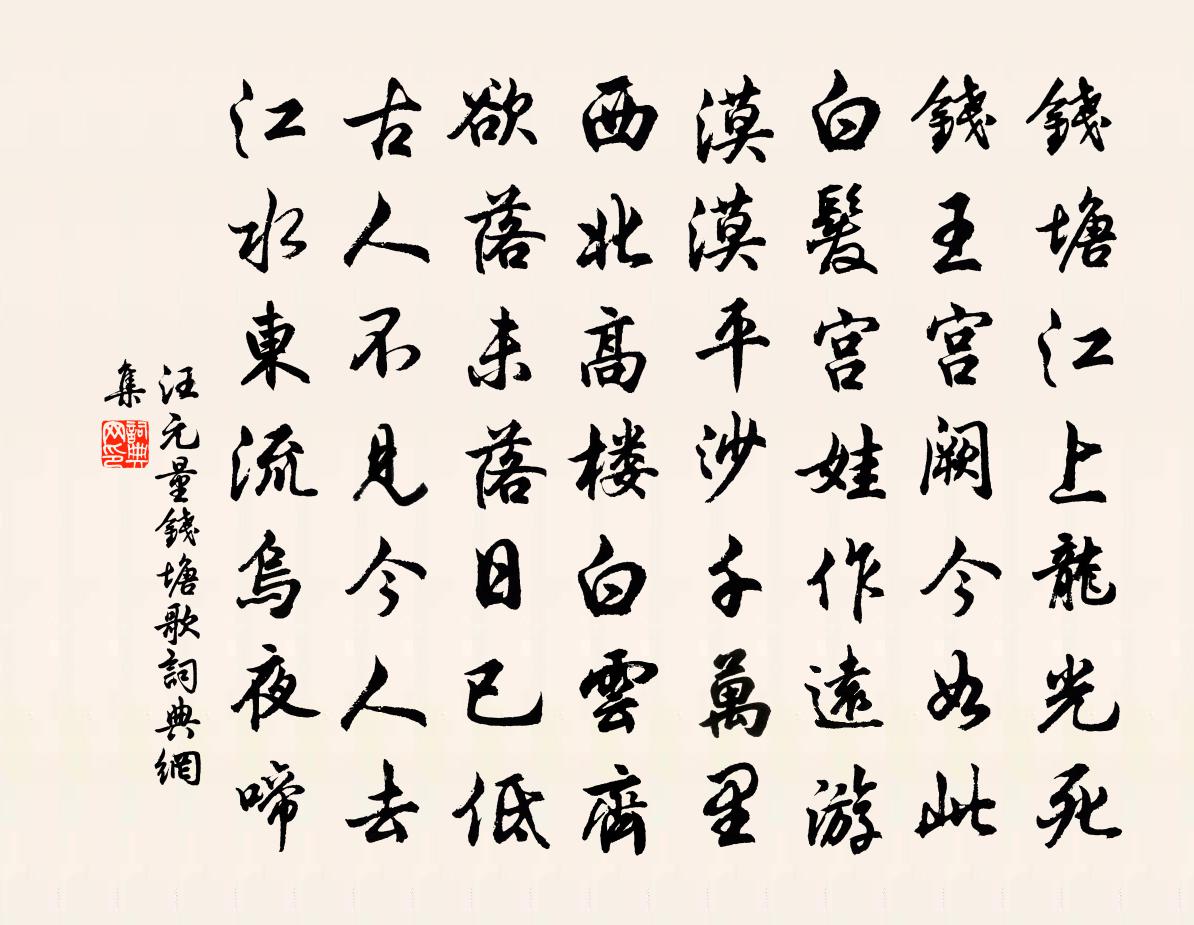 錢塘江上龍光死
錢王宮闕今如此
白髮宮娃作遠游
漠漠平沙千萬里
西北高楼白雲齊
欲落未落日已低
古人不見今人去
江水東流烏夜啼
汪元量錢塘歌詞典網
集
詞典
网印